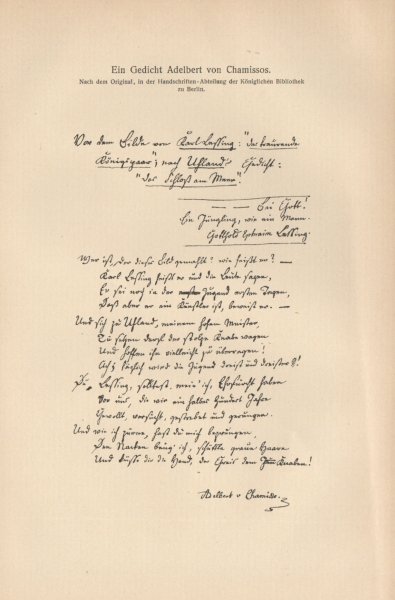 Ein Gedicht Adelbert von Chamissos.
Nach dem Original, in der Handschriften-Abteilung der Königlichen Bibliothek
zu Berlin.
Vor dem Bilde von Karl Lessing: "das trauernde
Königspaar", nach Uhlands Gedicht:
"das Schloß am Meer".
— — Bei Gott!
Ein Jüngling, wie ein Mann.
Gotthold Ephraim Lessing.
Wer ist, der dieses Bild gemahlt? wie heißt er? —
Karl Lessing heißt er und die Leute sagen,
Er sei noch in der Jugend ersten Tagen,
Daß aber er ein Künstler ist, beweist er. —
Und sich zu Uhland, meinem hohen Meister,
Zu setzen darf der stolze Knabe wagen
Und hoffen ihn vielleicht zu überragen!
Ach! täglich wird die Jugend dreist und dreister!
Du, Lessing, solltest, mein' ich, Ehrfurcht haben
Vor uns, die wir ein halbes Hundert Jahre
Gewollt, versucht, gestrebet und gerungen.
Und wie ich zürne, hast du mich bezwungen.
Den Nacken beug' ich, schüttle graue Haare
Und küsse dir die Hand, der Greis dem Knaben!
Adelbert v Chamisso.